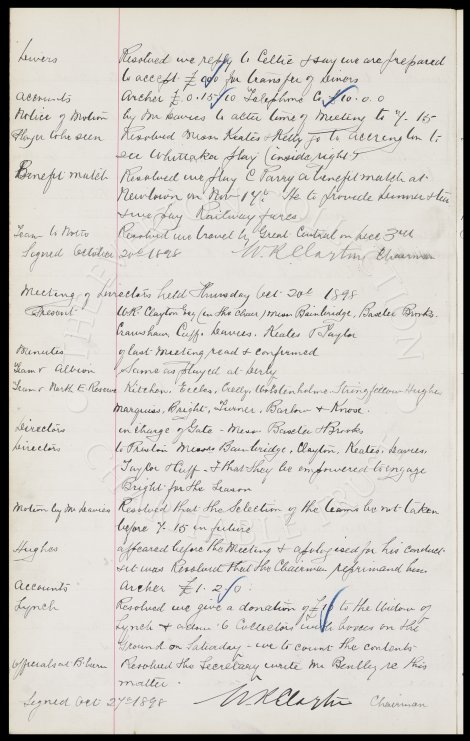 Divers Resolved we reply to Celtic & say we are prepared
to accept £ for transfer of Divers
Accounts Archer £0.15/10 Telephone Co £10.0.0
Notice of Motion by Mr Davies to alter time of Meeting to 7.15
Player to be seen Resolved Messrs Keates & Kelly go to Accrington to
see Whittaker play (inside right)
Benefit match Resolved we play C Parry a benefit match at
Newtown on Nov 17th. He to provide Dinner & tea
& we pay Railway fares
Team to Notts Resolved we travel by Great Central on Dec 3rd
Signed October 20th 1898 W.R. Clayton Chairman
Meeting of Directors held Thursday Oct 20th 1898
Present W R Clayton Esq (in the chair) Messrs Bainbridge, Baxter Brooks,
Crawshaw Cuff, Davies, Keates & Taylor
Minutes of last Meeting read & confirmed
Team v Albion Same as played at Derby
Team v North E Reserve Kitchen, Eccles, Crelly, Wolstenholme, Stringfellow Hughes
Marquis, Bright, Turner, Barlow & Knowe.
Directors in charge of Gate - Messrs Baxter & Brooks
Directors to Preston Messrs Bainbridge, Clayton, Keates, Davies,
Taylor & Cuff - & that they be empowered to engage
Bright for the Season
Motion by Mr Davies Resolved that the Selection of the team be not taken
before 7.15 in future
Hughes appeared before the Meeting & apologised for his conduct.
it was Resolved that the Chairman reprimand him
Accounts Archer £1.2/0.
Lynch Resolved we give a donation of £10 to the Widow of
Lynch & allow 6 Collectors with boxes on the
Ground on Saturday - we to count the contents
Officials at B.burn Resolved the Secretary write Mr Bentley re this
matter.
Signed Oct 27th 1898 W R Clayton Chairman